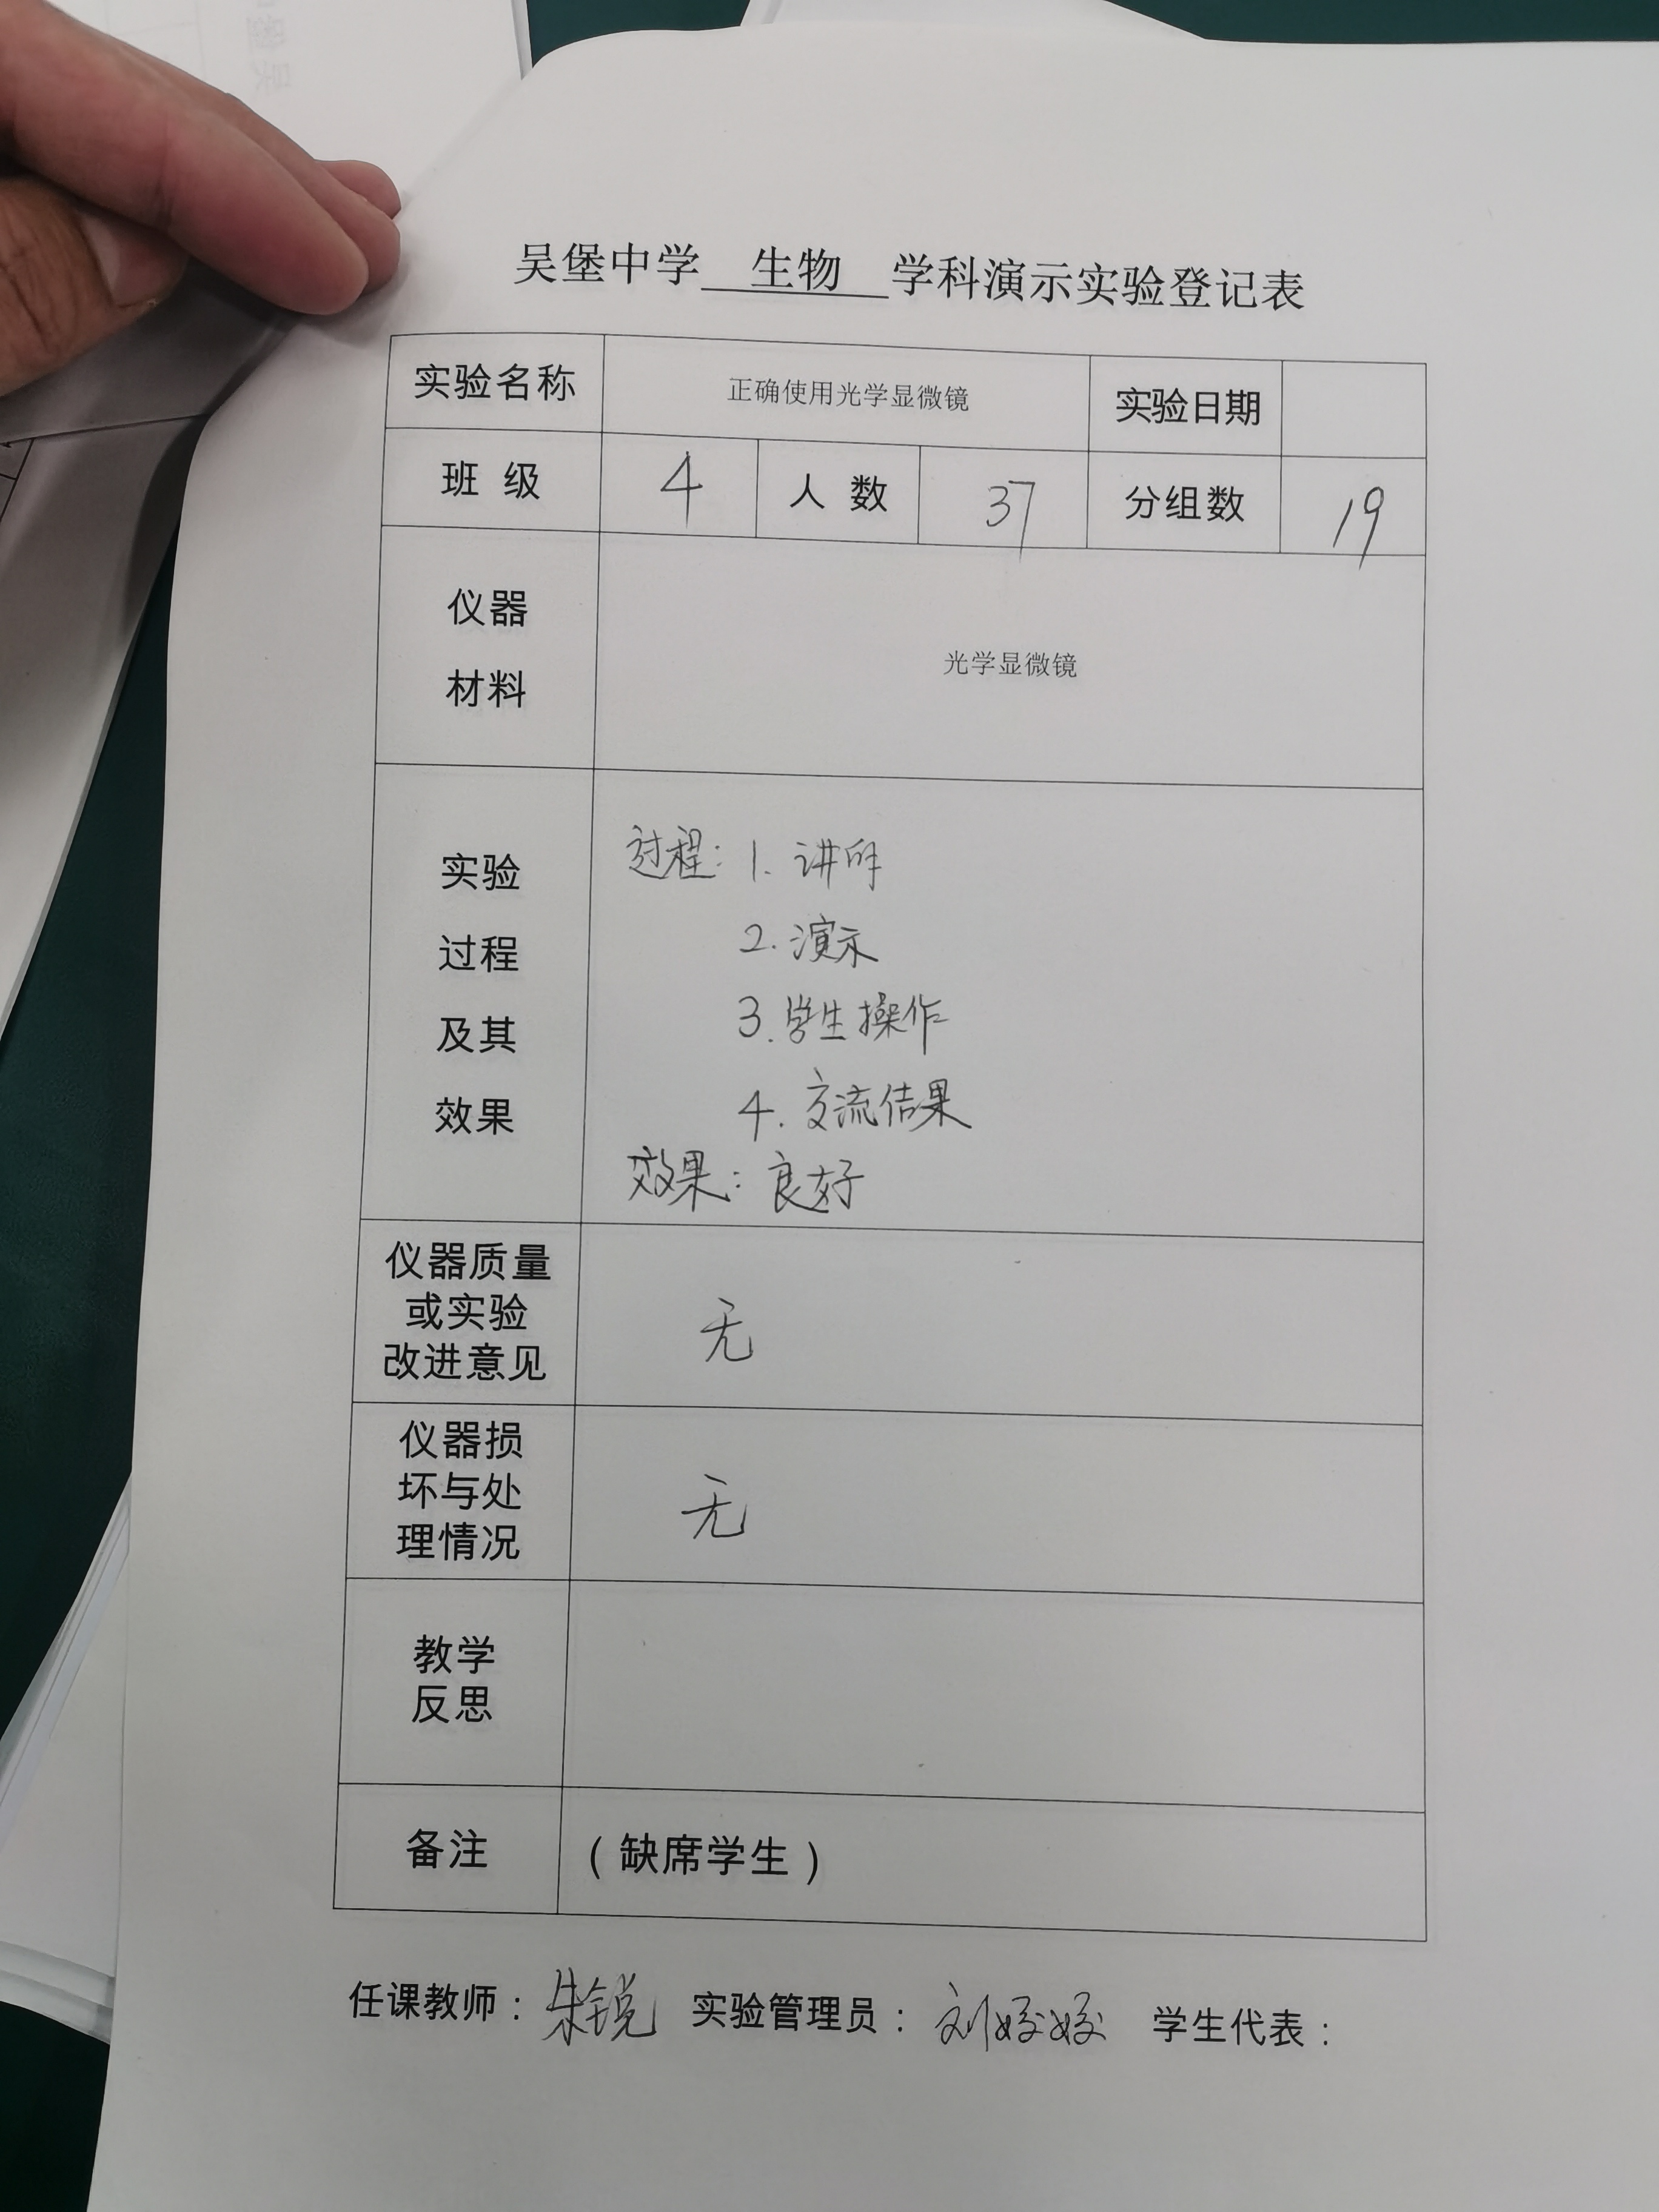 吴堡中学 生物 学科演示实验登记表
实验名称 正确使用光学显微镜 实验日期
班 级 4 人 数 37 分组数 19
仪器
材料
光学显微镜
实验
过程
及其
效果
过程: 1. 讲解
2. 演示
3. 学生操作
4. 交流结果
效果: 良好
仪器质量
或实验
改进意见
无
仪器损
坏与处
理情况
无
教学
反思
备注 (缺席学生)
任课教师: 朱锐 实验管理员: 刘姣姣 学生代表: